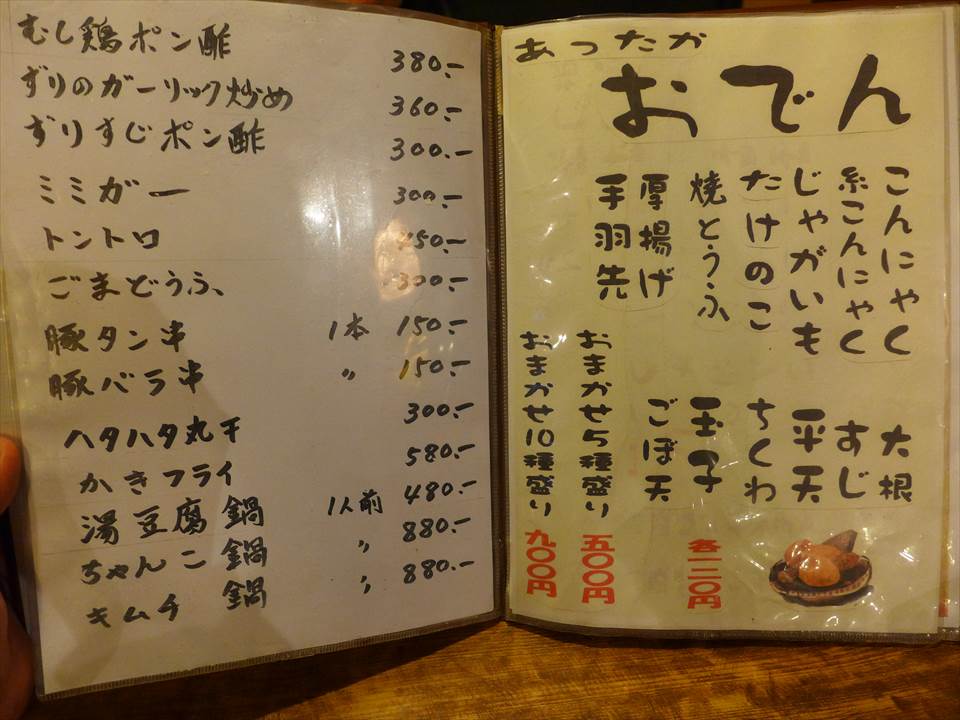 むし鶏ポン酢 380.-
ずりのガーリック炒め 360.-
ずりすじポン酢 300.-
ミミガー 300.-
トントロ 450.-
ごまどうふ 300.-
豚タン串 1本 150.-
豚バラ串 〃 150.-
ハタハタ丸干 300.-
かきフライ 580.-
湯豆腐鍋 1人前 480.-
ちゃんこ鍋 〃 880.-
キムチ鍋 〃 880.-
あったか
おでん
こんにゃく
糸こんにゃく
じゃがいも
たけのこ
焼とうふ
厚揚げ
手羽先
大根
すじ
平天
ちくわ
玉子
ごぼ天
各一二〇円
おまかせ5種盛り 五〇〇円
おまかせ10種盛り 九〇〇円